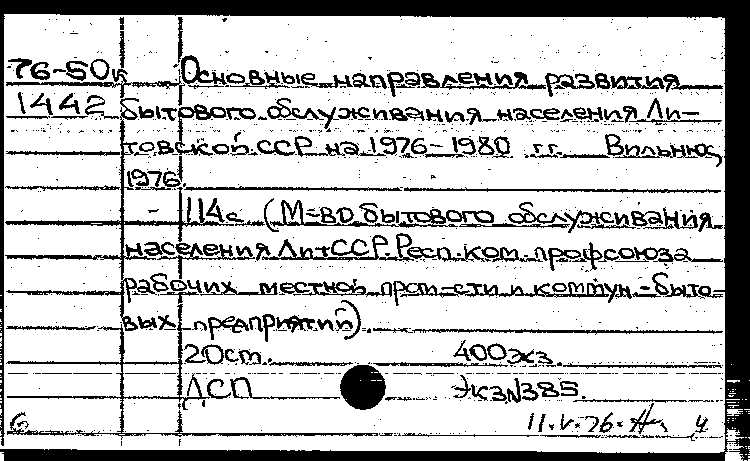 76-50к Основные направления развития
1442 бытового обслуживания населения Ли-
товской ССР на 1976-1980 гг. Вильнюс,
1976.
- 114с (М-во бытового обслуживания
населения ЛитССР. Респ. ком. профсоюза
рабочих местной пром-сти и коммун.-быто-
вых предприятий).
20см. 400экз.
ДСП Экз№385.
6 11.V.76. 4